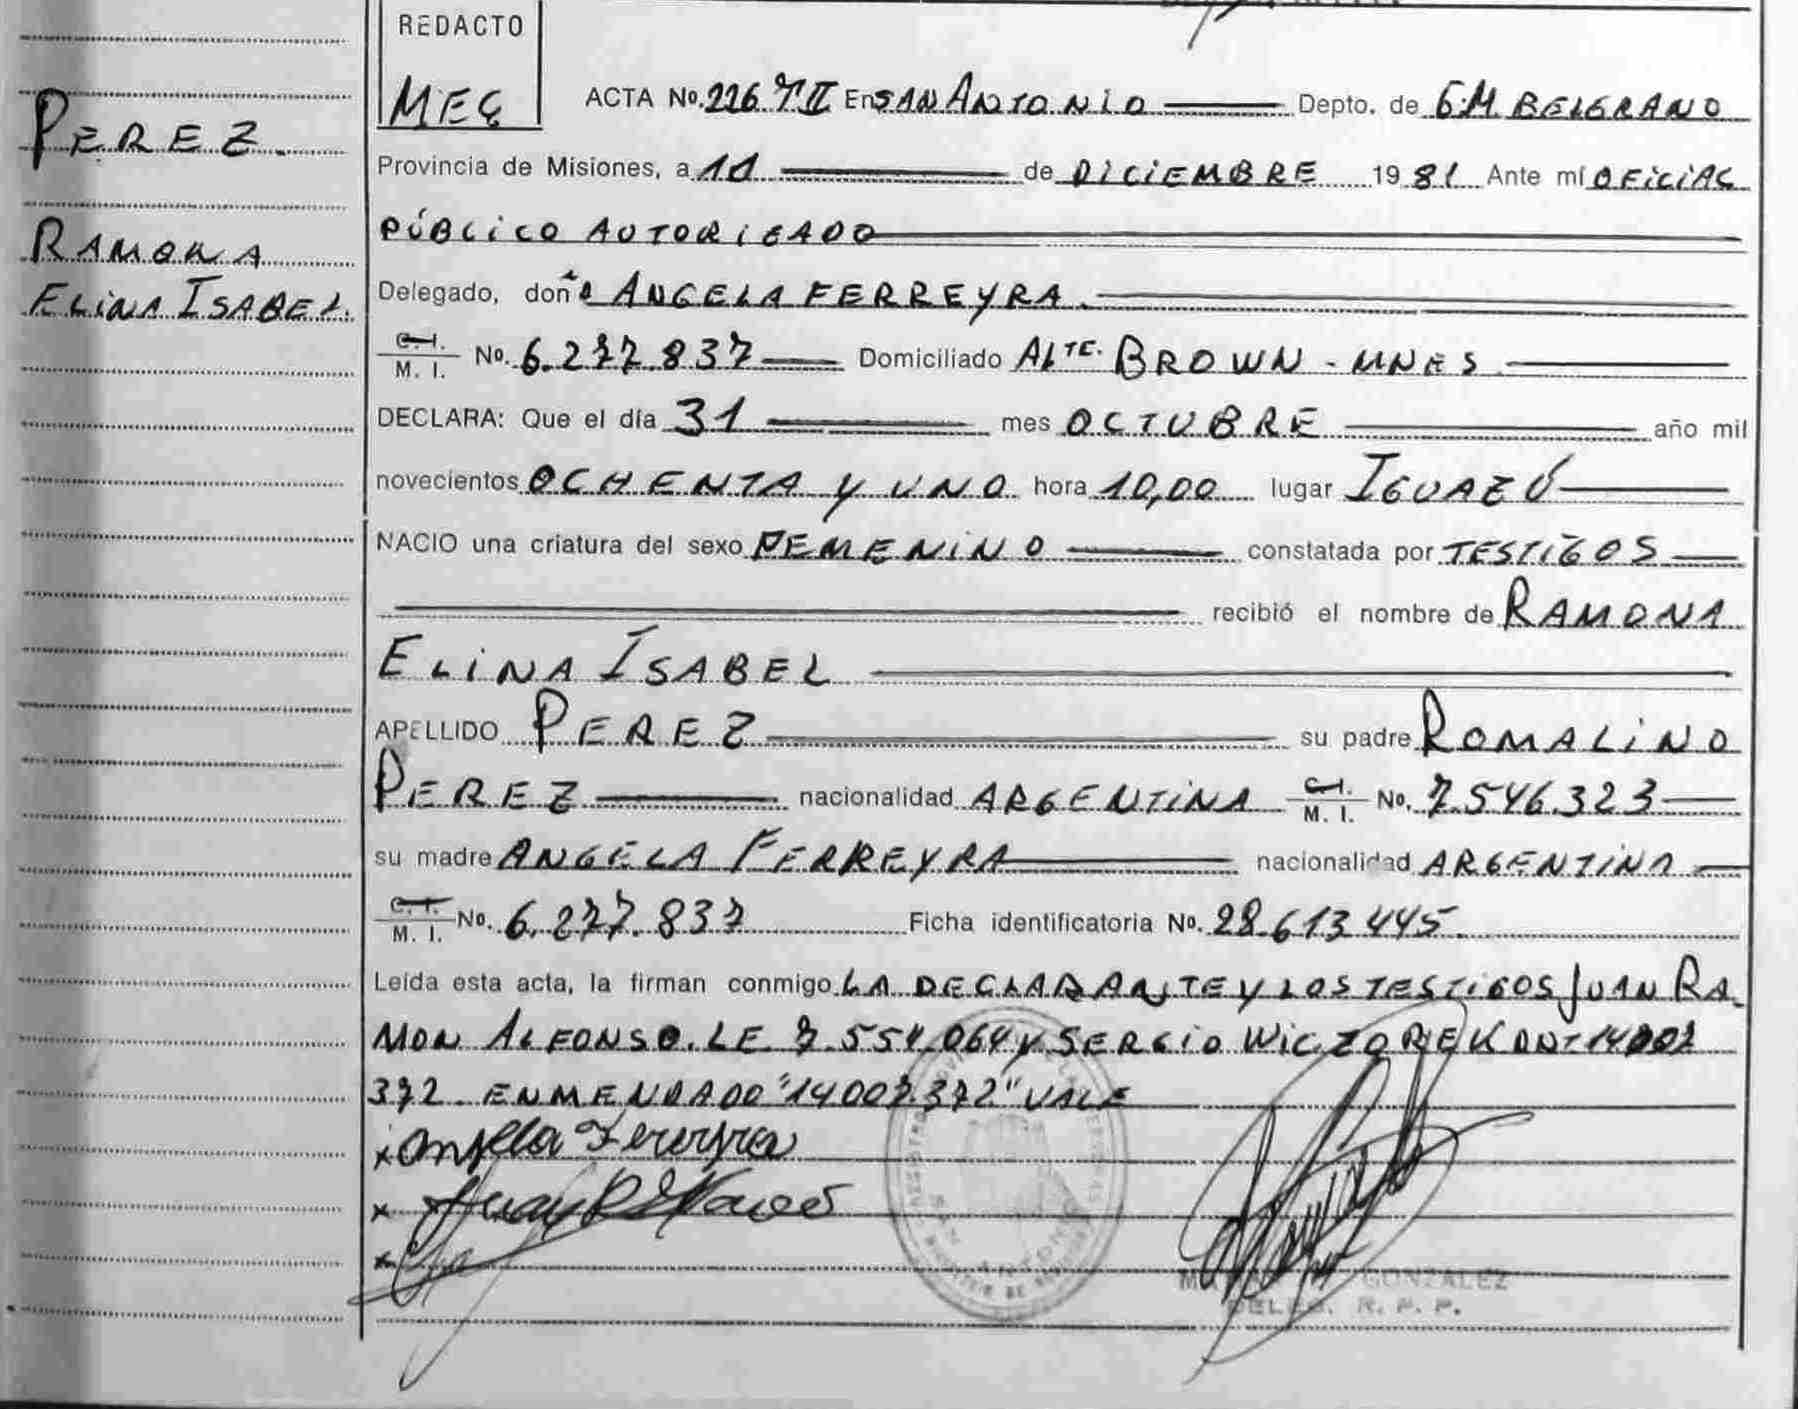 REDACTO
MEG
PEREZ.
RAMONA
ELINA ISABEL.
ACTA No. 226 TII En SAN ANTONIO Depto. de G.M. BELGRANO
Provincia de Misiones, a 11 de DICIEMBRE 1981 Ante mí OFICIAL
PÚBLICO AUTORIZADO
Delegado, doña ANGELA FERREYRA.
C.I. M. I. No. 6.277.837 Domiciliado ALTE. BROWN - MNES
DECLARA: Que el día 31 mes OCTUBRE año mil
novecientos OCHENTA Y UNO hora 10,00 lugar IGUAZÚ
NACIO una criatura del sexo FEMENINO constatada por TESTIGOS
recibió el nombre de RAMONA
ELINA ISABEL
APELLIDO PEREZ su padre ROMALINO
PEREZ nacionalidad ARGENTINA C.I. M. I. No. 7.546.323
su madre ANGELA FERREYRA nacionalidad ARGENTINA
C.I. M. I. No. 6.277.837 Ficha identificatoria No. 28.613.445.
Leída esta acta, la firman conmigo LA DECLARANTE Y LOS TESTIGOS JUAN RA
MON ALFONSO. LE 7.554.064 Y SERGIO WICZOREK DNI 14007
372. ENMENDADO "14007.372" VALE
x Angela Ferreyra
x
x
SAN ANTONIO
GONZALEZ
DELEG. R. P. P.